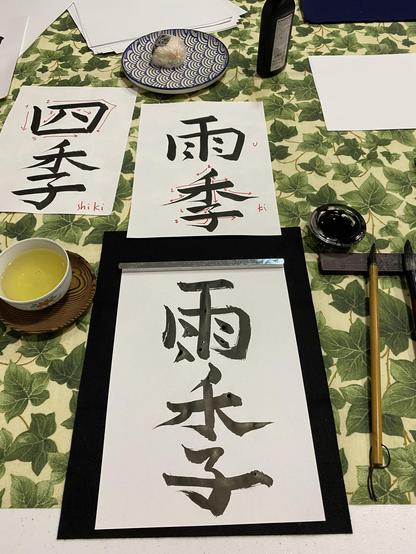 四季
shiki
雨季
u
ki
雨季